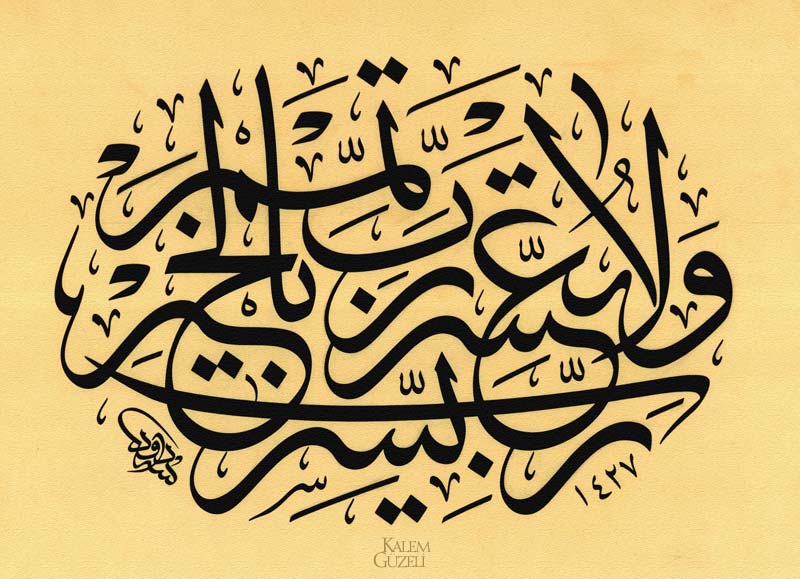 رَبِّ يَسِّرْ
وَلَا تُعَسِّرْ
رَبِّ تَمِّمْ
بِالْخَيْرِ
١٤٢٧
KALEM
GÜZELİ